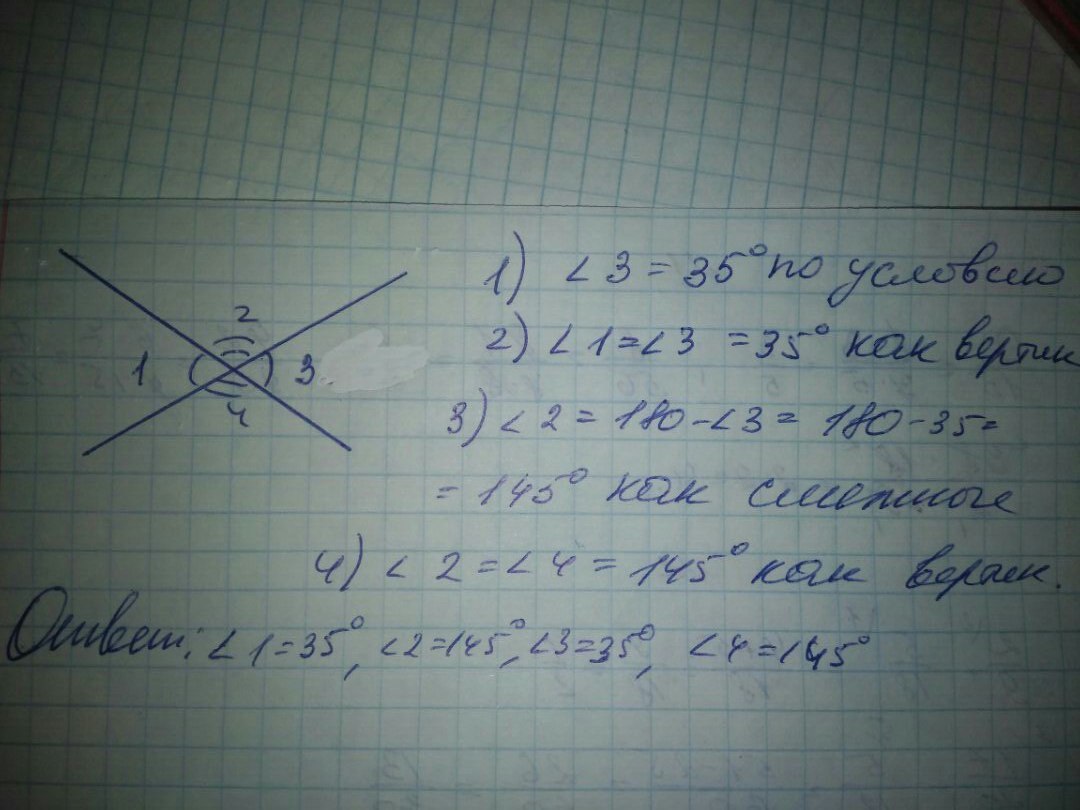 2
1
3
4
1) ∠3 = 35° по условию
2) ∠1=∠3 =35° как вертик
3) ∠2 = 180-∠3 = 180-35=
= 145° как смежные
4) ∠2=∠4=145° как вертик.
Ответ: ∠1=35°, ∠2=145°, ∠3=35°, ∠4=145°